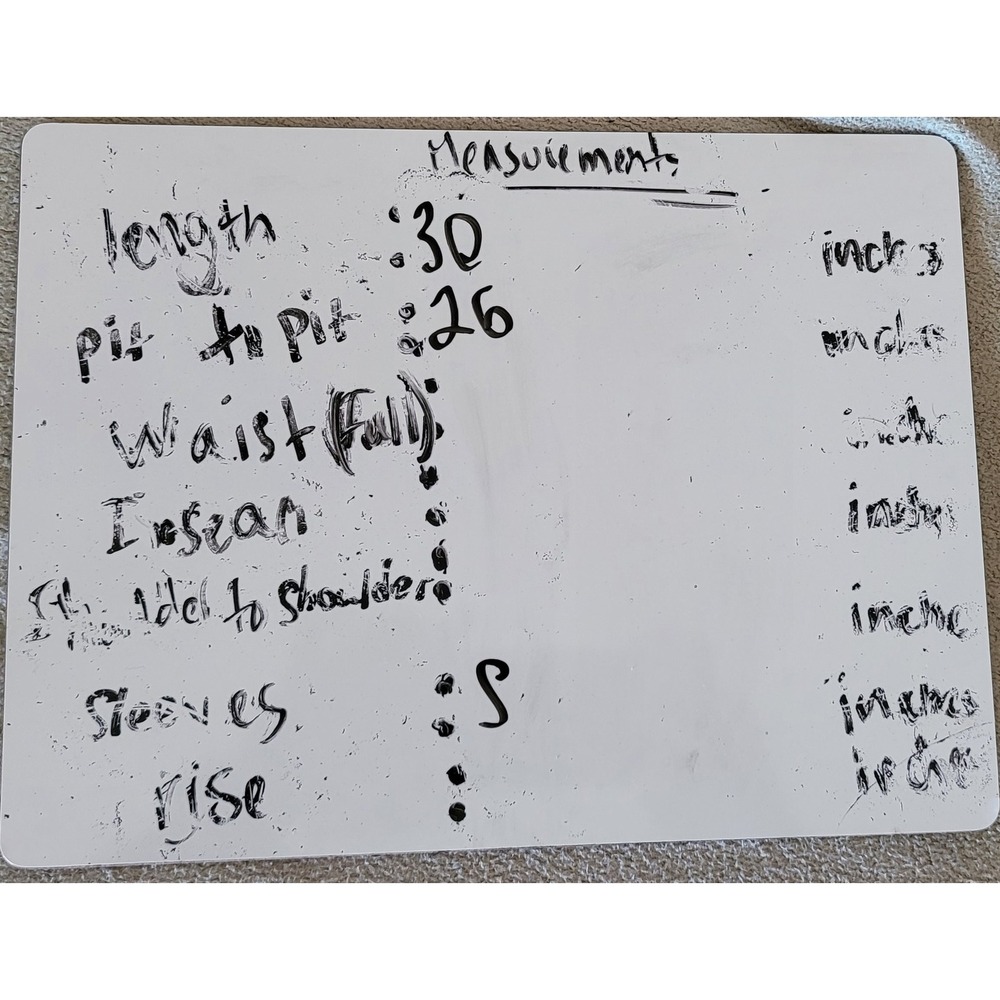 Measurements
length : 30 inches
pit to pit : 26 inches
Waist (Full) : inches
Inseam : inches
Shoulder to Shoulder : inche
Sleeves : S inches
rise : inches